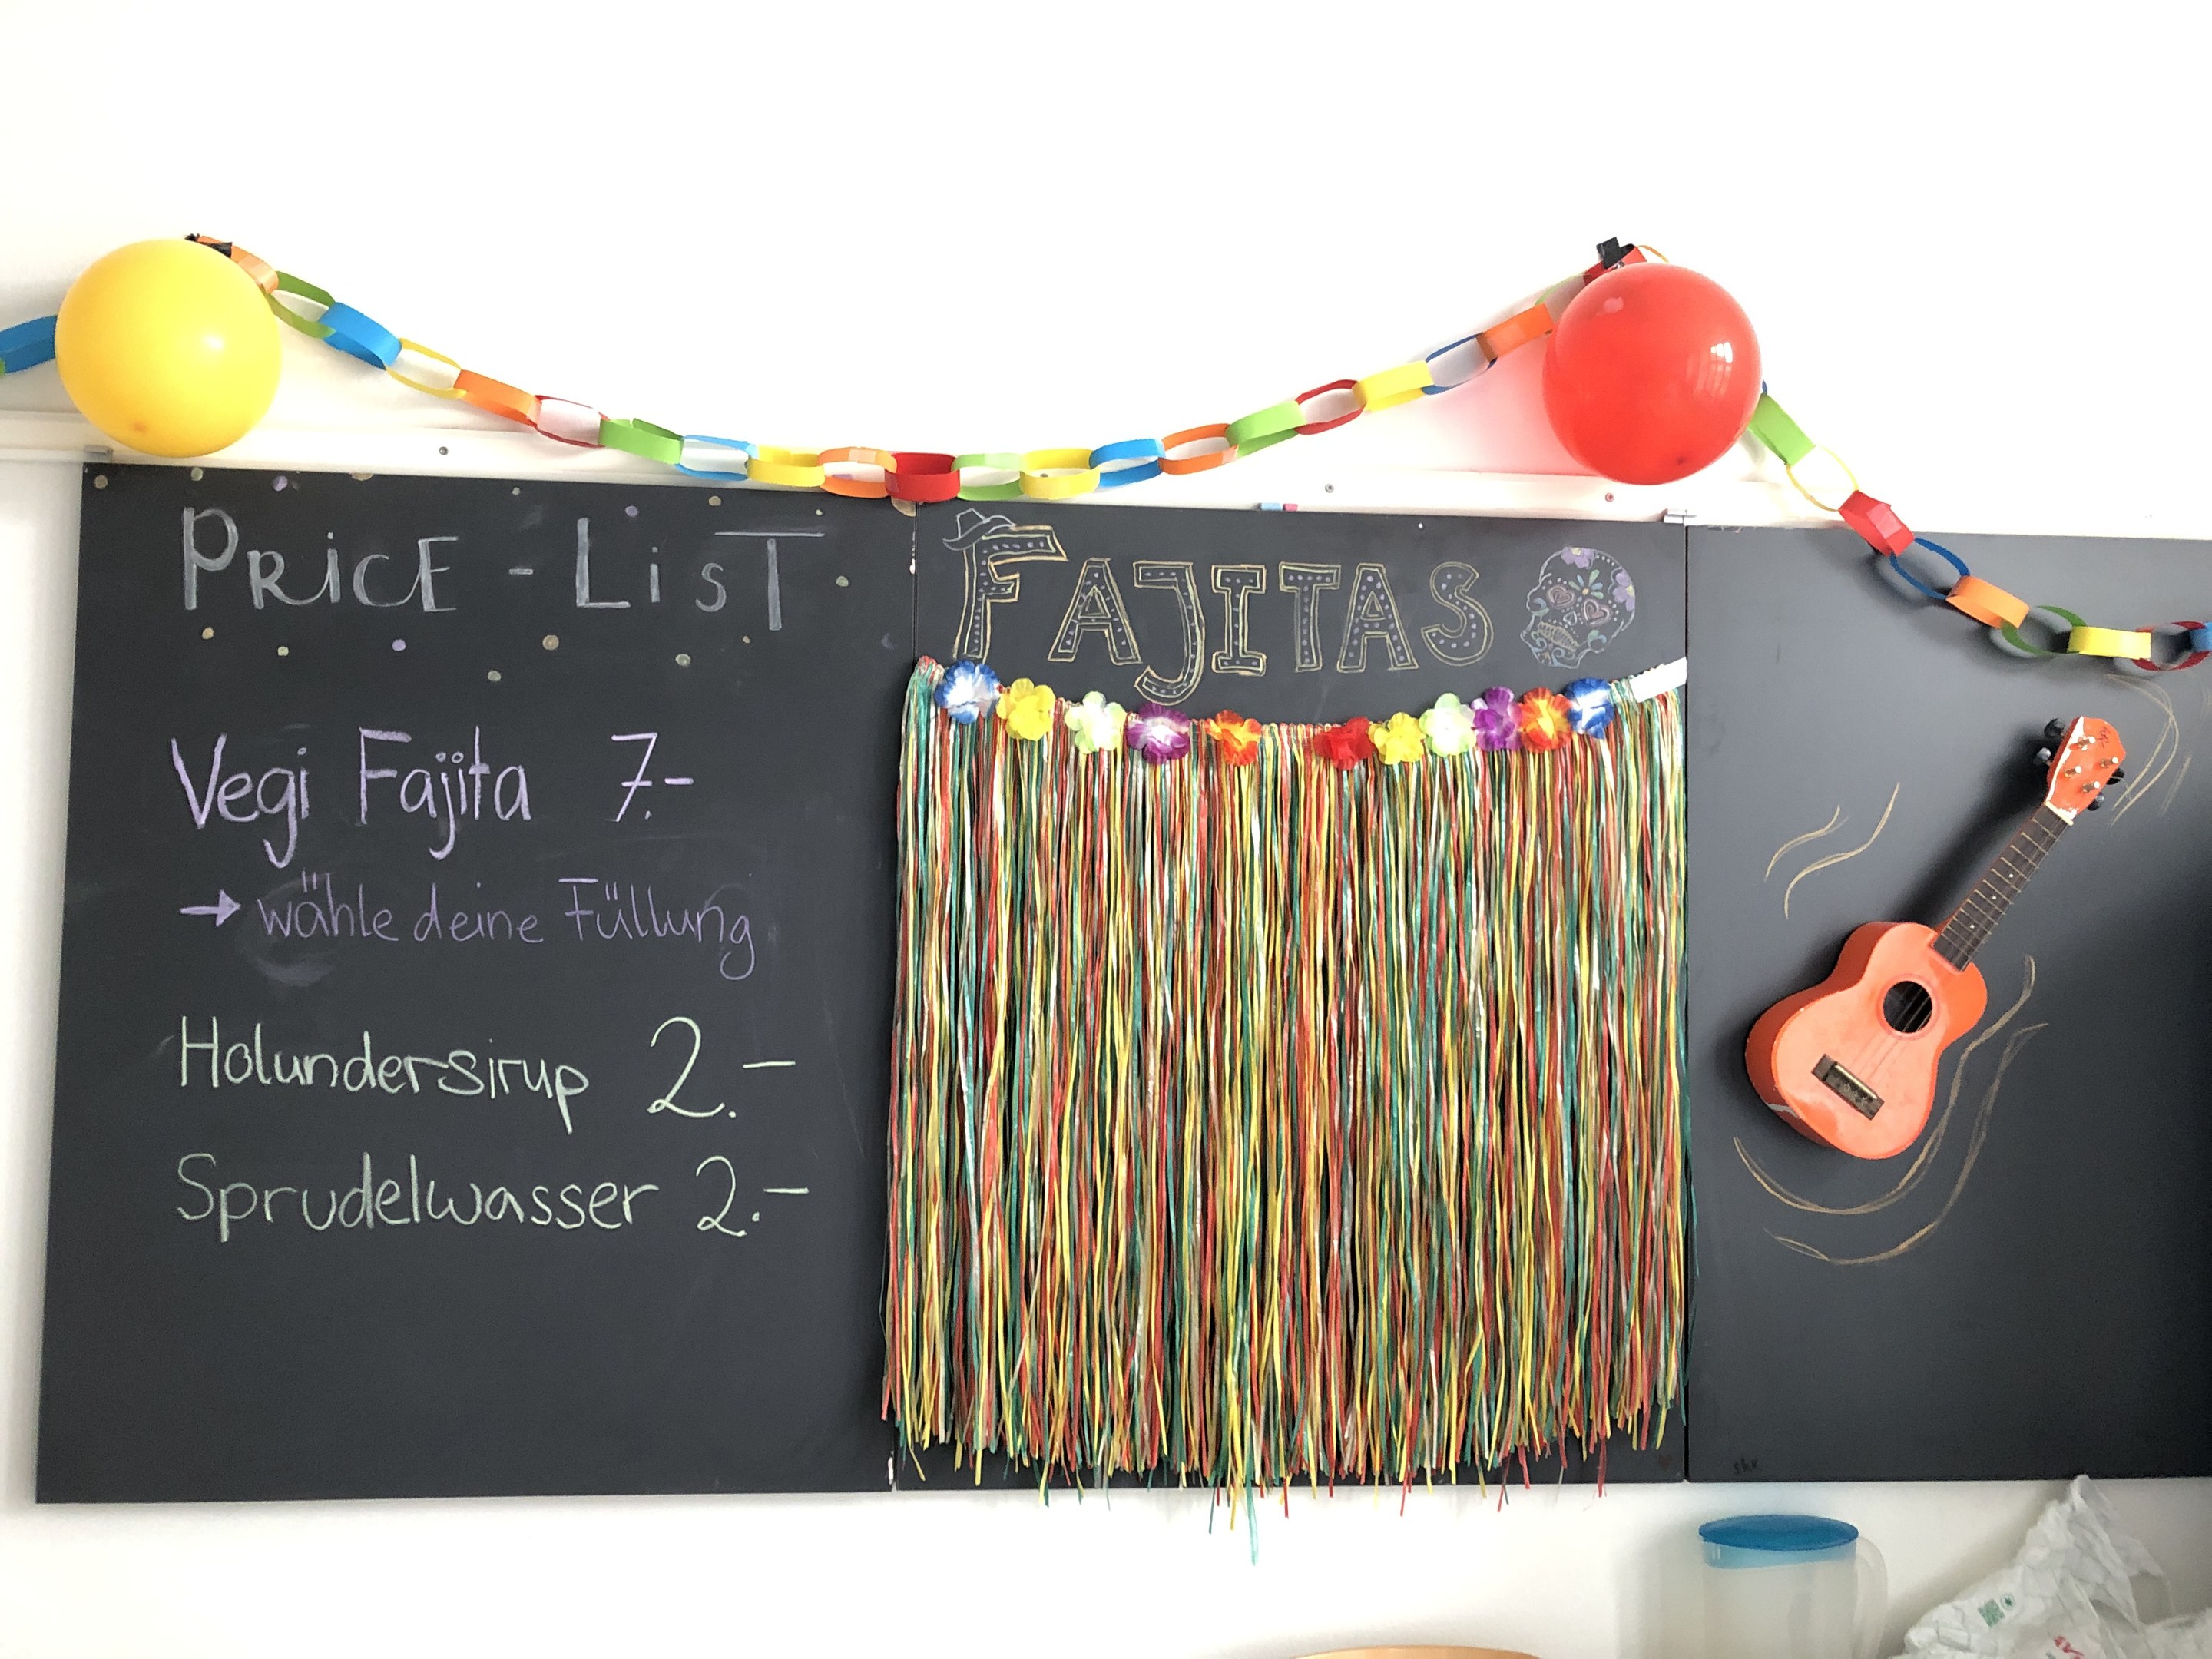 PRICE - LIST
Vegi Fajita 7.-
→ wähle deine Füllung
Holundersirup 2.-
Sprudelwasser 2.-
FAJITAS